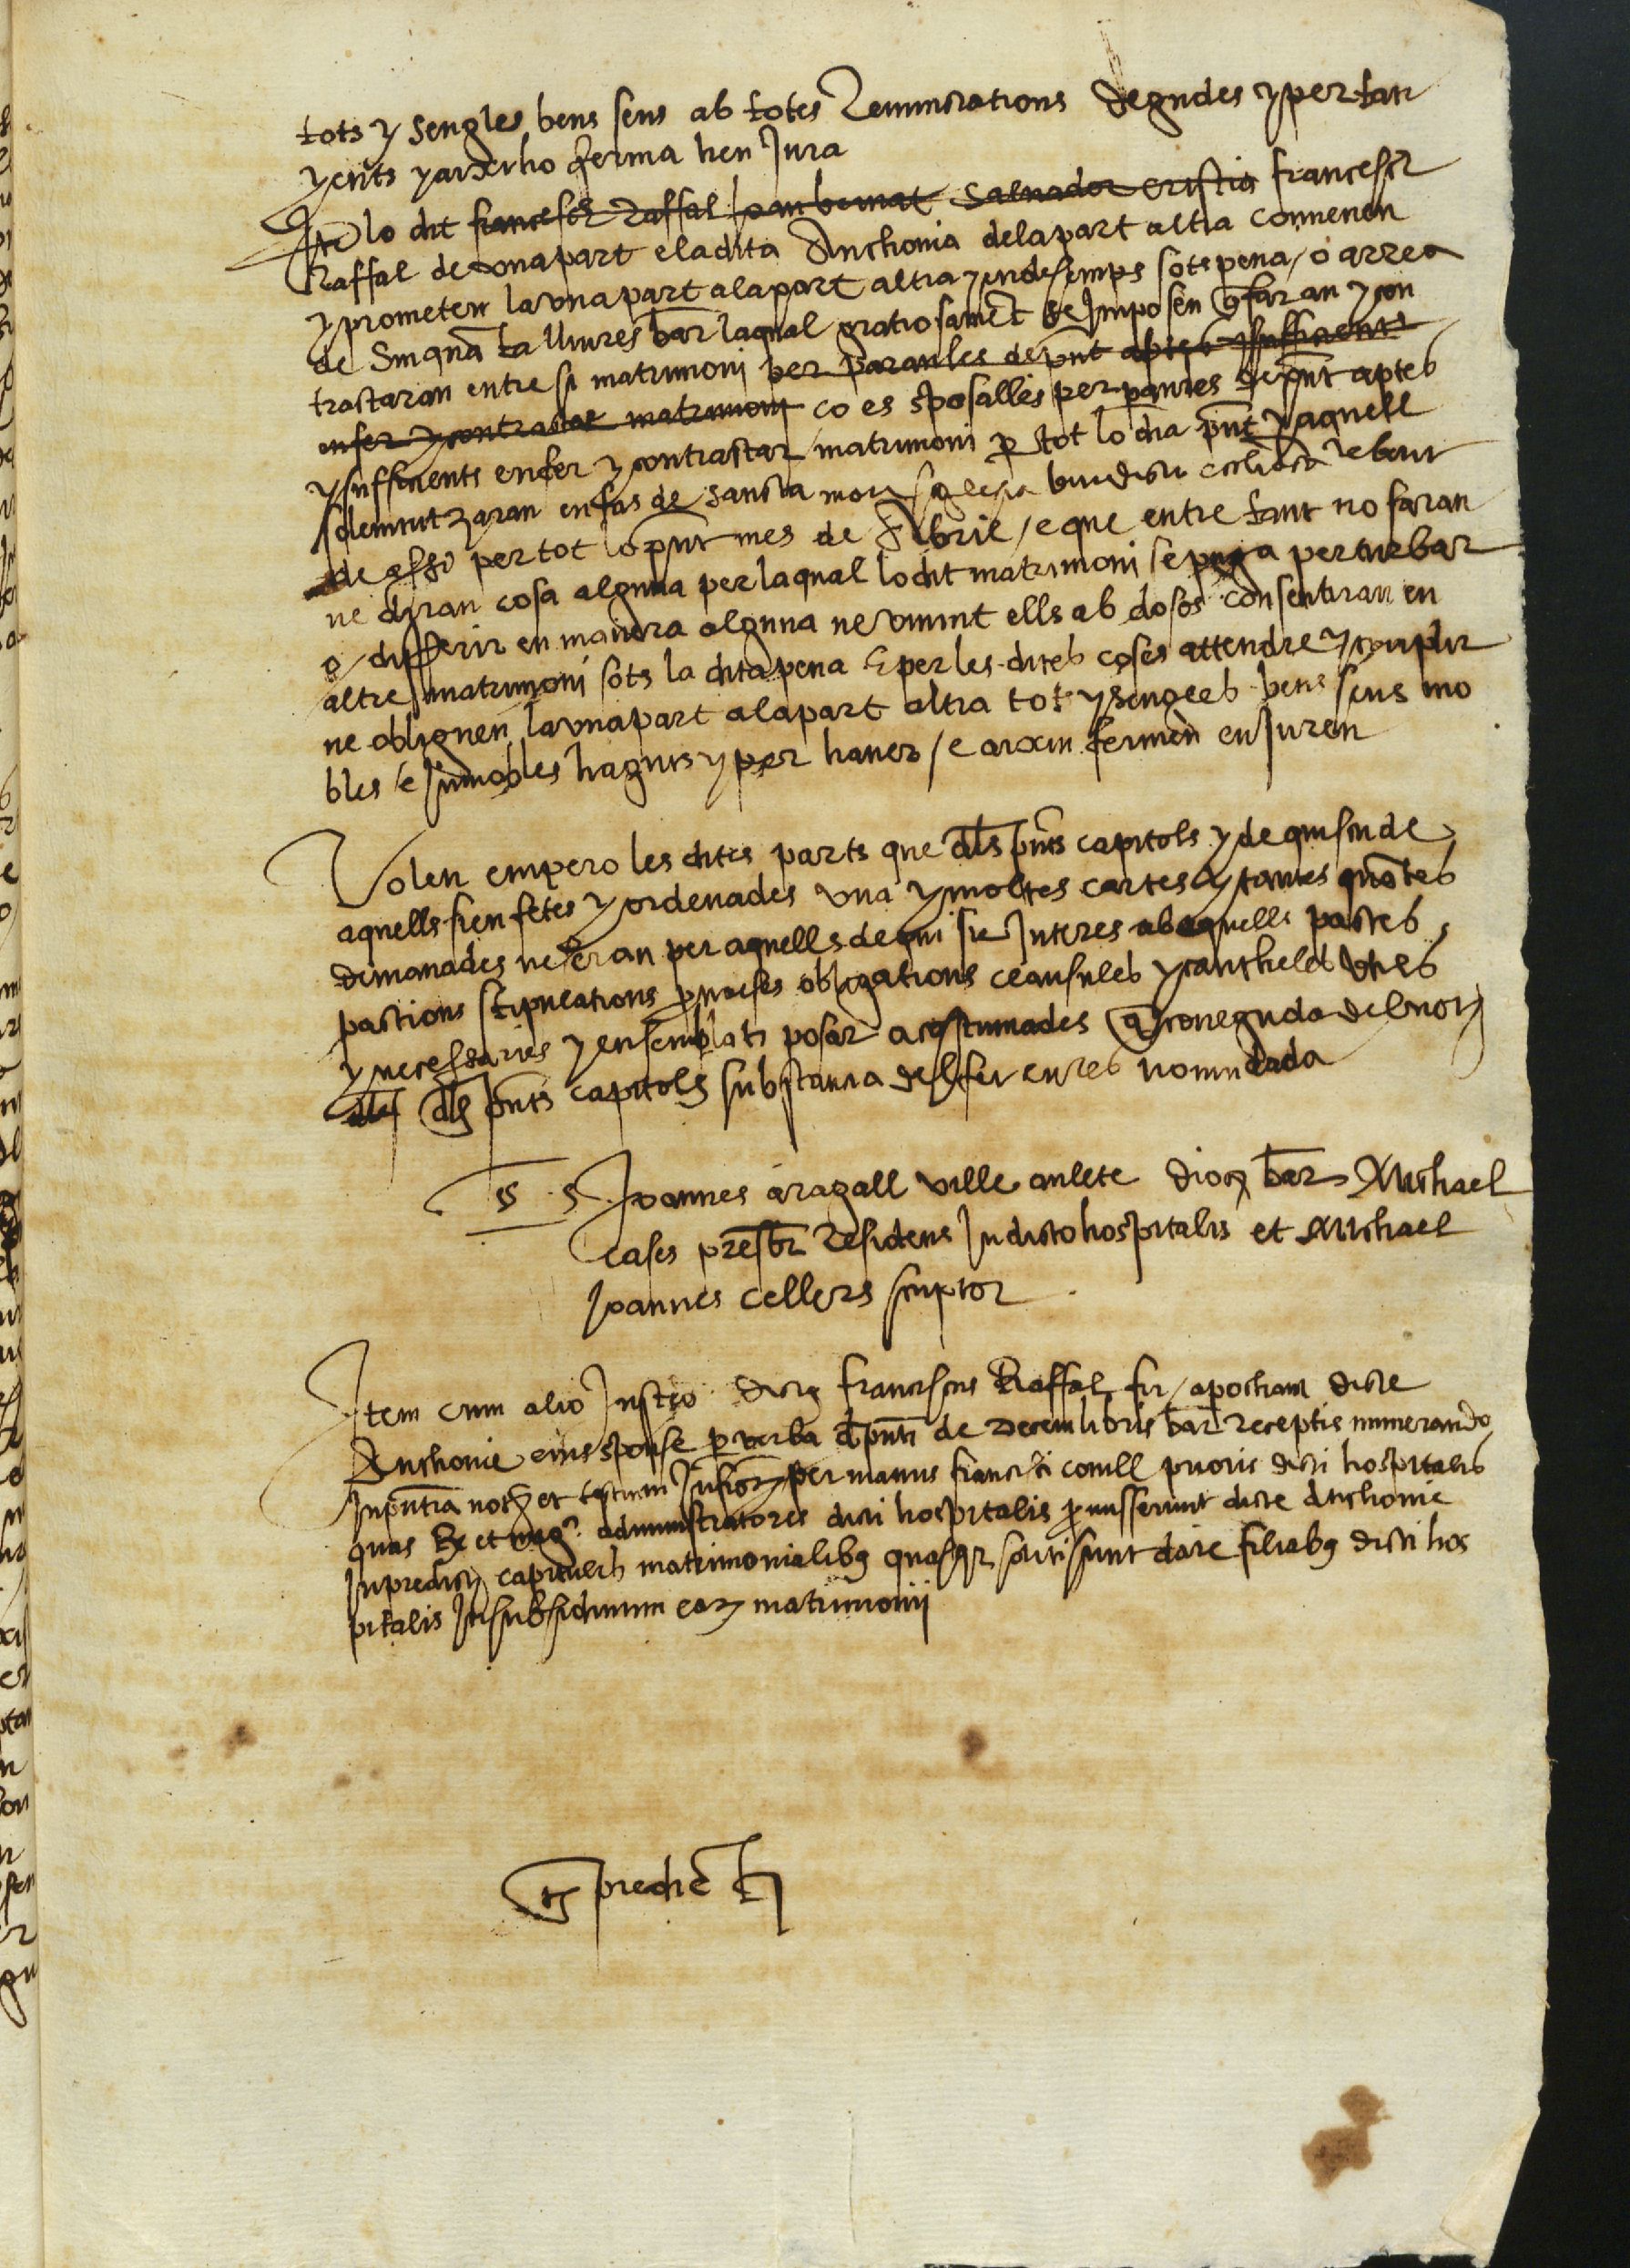 tots y sengles bens seus ab totes renunciations degudes y pertan
yents y axi ho ferma hen jura
Ite lo dit francesch raffal joan bernat Salvador cristia francesch
Raffal de una part e la dita Anthonia dela part altra convenen
y prometen la una part ala part altra y endesemps sots pena / o arrea
de Sinquãta lliures bar la qual gratiosament se imposen q faran y con
tractaran entre si matrimoni per paraules de pnt aptes y sufficients
enfer y contractar matrimoni ço es sposalles per paraules de pnt aptes
y sufficients enfer y contractar matrimoni p tot lo dia pnt y aquell
solemnitzaran enfas de sancta mare sglesia
de assi per tot lo pnt mes de Abril / e que entre tant no faran
ne diran cosa alguna per la qual lo dit matrimoni se puga perturbar
o / differir en manera alguna ne vinint ells ab dosos consentiran en
altre matrimoni sots la dita pena E per les dites coses attendre y complir
ne obliguen la una part ala part altra tots y sengles bens seus mo
bles / e jmmobles haguts y per haver / e axin fermen en juren
Volen empero les dites parts que dls pnts capitols y de quiscu de
aquells sien fetes y ordenades una y moltes cartes y tantes quãtes
demanades ne seran per aquells de qui sie interes ab aquells pactes
pactions stipulations pmeses obligations clausules y cautheles utiles
y necessaries y en semblats posar acostumades a coneguda del not
dls dls pnts capitols substantia del fet en res no mudada
ss s Joannes aragall ville aulete dioc bar Michael
cases presbr residens in dicto hospitalis et Michael
Joannes cellers scriptor
Item cum alio Instro dictus franciscus Raffal fir / apocham dicte
Anthonie eius sponse p verba d pnti de decem libris bar receptis numerando
In pntia not et testium infror per manus francisci comll prioris dicti hospitalis
quas Rx et mag administratores dicti hospitalis pmisserunt dicte Anthonie
In predictis capitulis matrimonialibus quasqz soliti sunt dare filiabus dicti hos
pitalis In subsidium eorz matrimonii
ts predicti